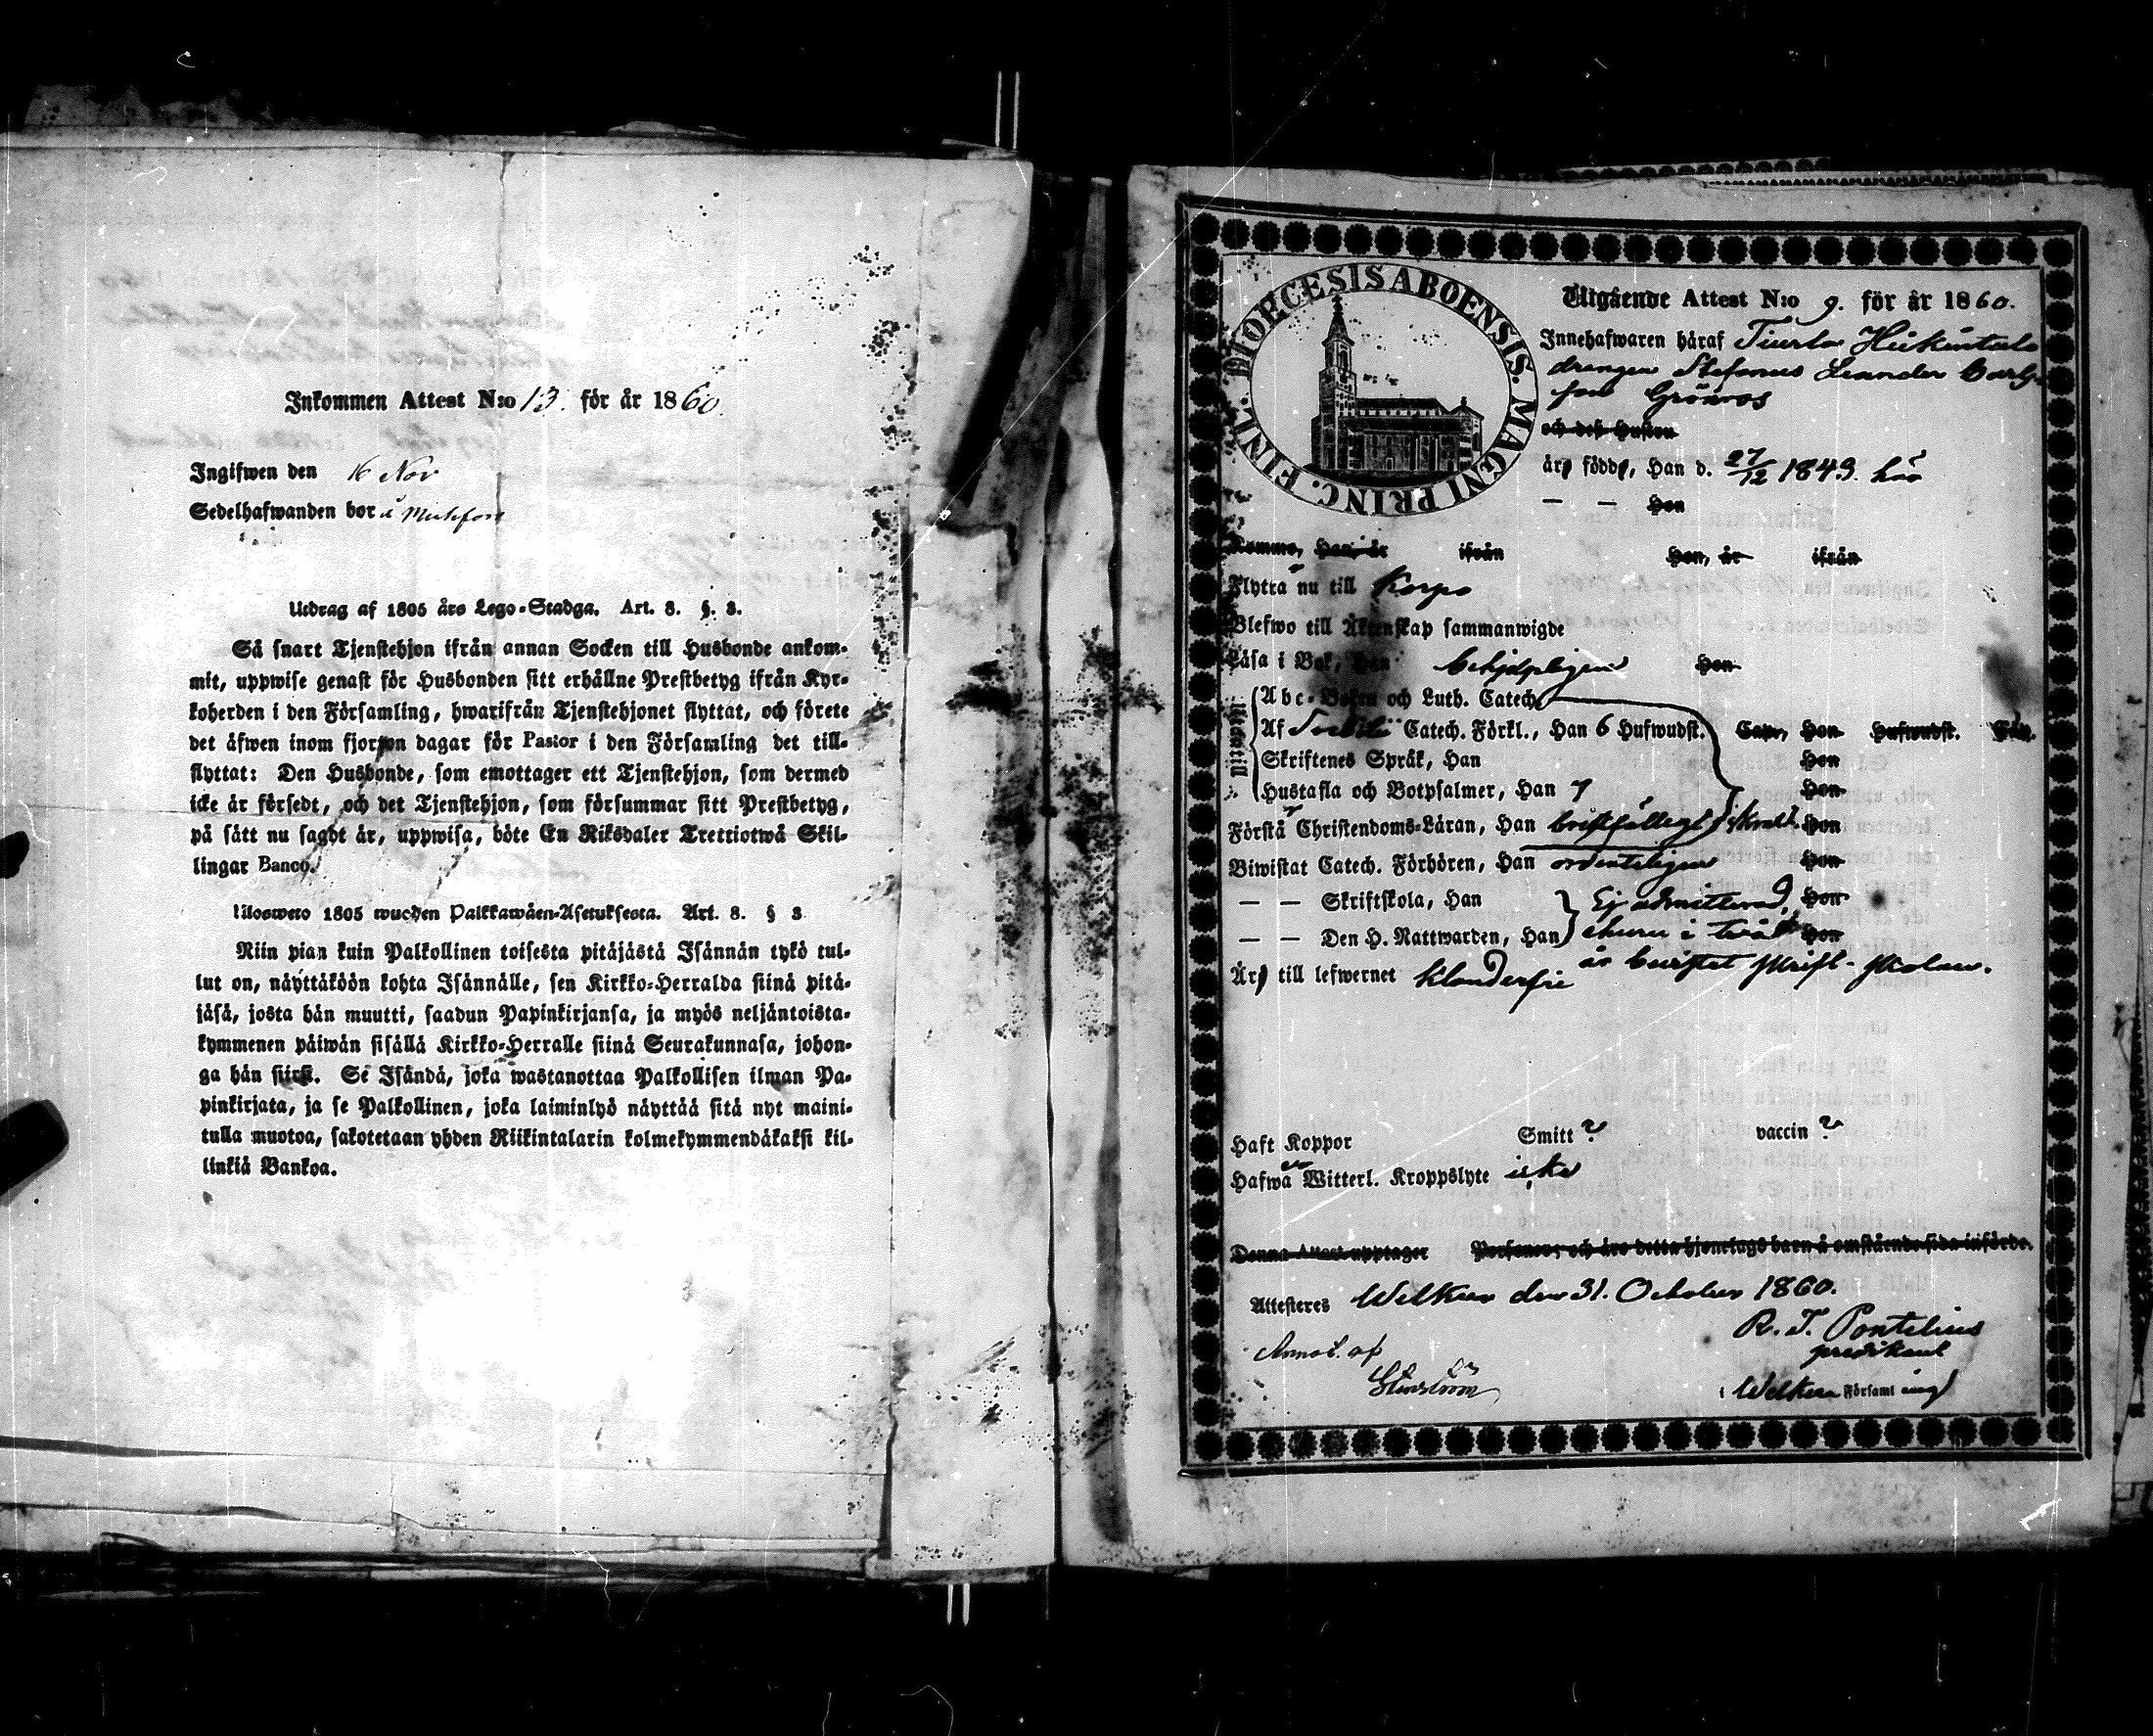 Inkommen Attest N:o 13. för år 1860.
Ingifwen den 16 Nov
Sedelhafwanden bor i
Utdrag af 1805 års Lego-Stadga. Art. 8. §. 3.
Så snart Tjenstehjon ifrån annan Socken till Husbonde ankom-
mit, uppwise genast för Husbonden sitt erhållne Prestbetyg ifrån Kyr-
koherden i den Församling, hwarifrån Tjenstehjonet flyttat, och förete
det äfwen inom fjorton dagar för Pastor i den Församling det till-
flyttat: Den Husbonde, som emottager ett Tjenstehjon, som dermed
icke är försedt, och det Tjenstehjon, som försummar sitt Prestbetyg,
på sätt nu sagdt är, uppwisa, böte En Riksdaler Trettiotwå Skil-
lingar Banco.
Ulosweto 1805 wuoden Palkkawäen-Asetuksesta. Art. 8. § 3
Niin pian kuin Palkollinen toisesta pitäjästä Isännän tykö tul-
lut on, näyttäköön kohta Isännälle, sen Kirkko-Herralda siinä pitä-
jäsä, josta hän muutti, saadun Papinkirjansa, ja myös neljäntoista-
kymmenen päiwän sisällä Kirkko-Herralle siinä Seurakunnasa, johon-
ga hän siirst. Se Isändä, joka wastanottaa Palkollisen ilman Pa-
pinkirjata, ja se Palkollinen, joka laiminlyö näyttää sitä nyt maini-
tulla muotoa, sakotetaan yhden Riikintalarin kolmekymmendäkaksi kil-
linkiä Bankoa.
DIOECESIS ABOENSIS. MAGNI PRINC. FINL.
Utgående Attest N:o 9. för år 1860.
Innehafwaren häraf
drengen Stefanus Leander Carls-
son Grönroos
och deß hustru
är född, Han d. 27/12 1843. här
— — Hon
Komme, Han, år ifrån Hon, år ifrån
Flyttar nu till Korpo
Blefwo till Äktenskap sammanwigde
Läsa i Bok, Han behjelpligen Hon
Utantill
Abc-Boken och Luth. Catech.
Af Catech. Förkl., Han 6 Hufwudst. Cap., Hon Hufwudst. Cap.
Skriftenes Språk, Han Hon
Hustafla och Botpsalmer, Han 7 Hon
Förstår Christendoms-Läran, Han bristfälligt Hon
Biwistat Catech. Förhören, Han ordenteligen Hon
— — Skriftskola, Han Ej admitterad, Hon
— — Den H. Nattwarden, Han ehuru i två Hon
år bevistat skrift-skolan.
Är till lefwernet klanderfri
Haft Koppor Smitt ? vaccin ?
Hafwer Witterl. Kroppslyte icke
Denna Attest upptager Personer, och äro detta hjonelags barn å omstående sida införde.
Attesteres Welkua den 31. October 1860.
R. T. Pontelius
predikant
Annot. af
i Welkua Församling